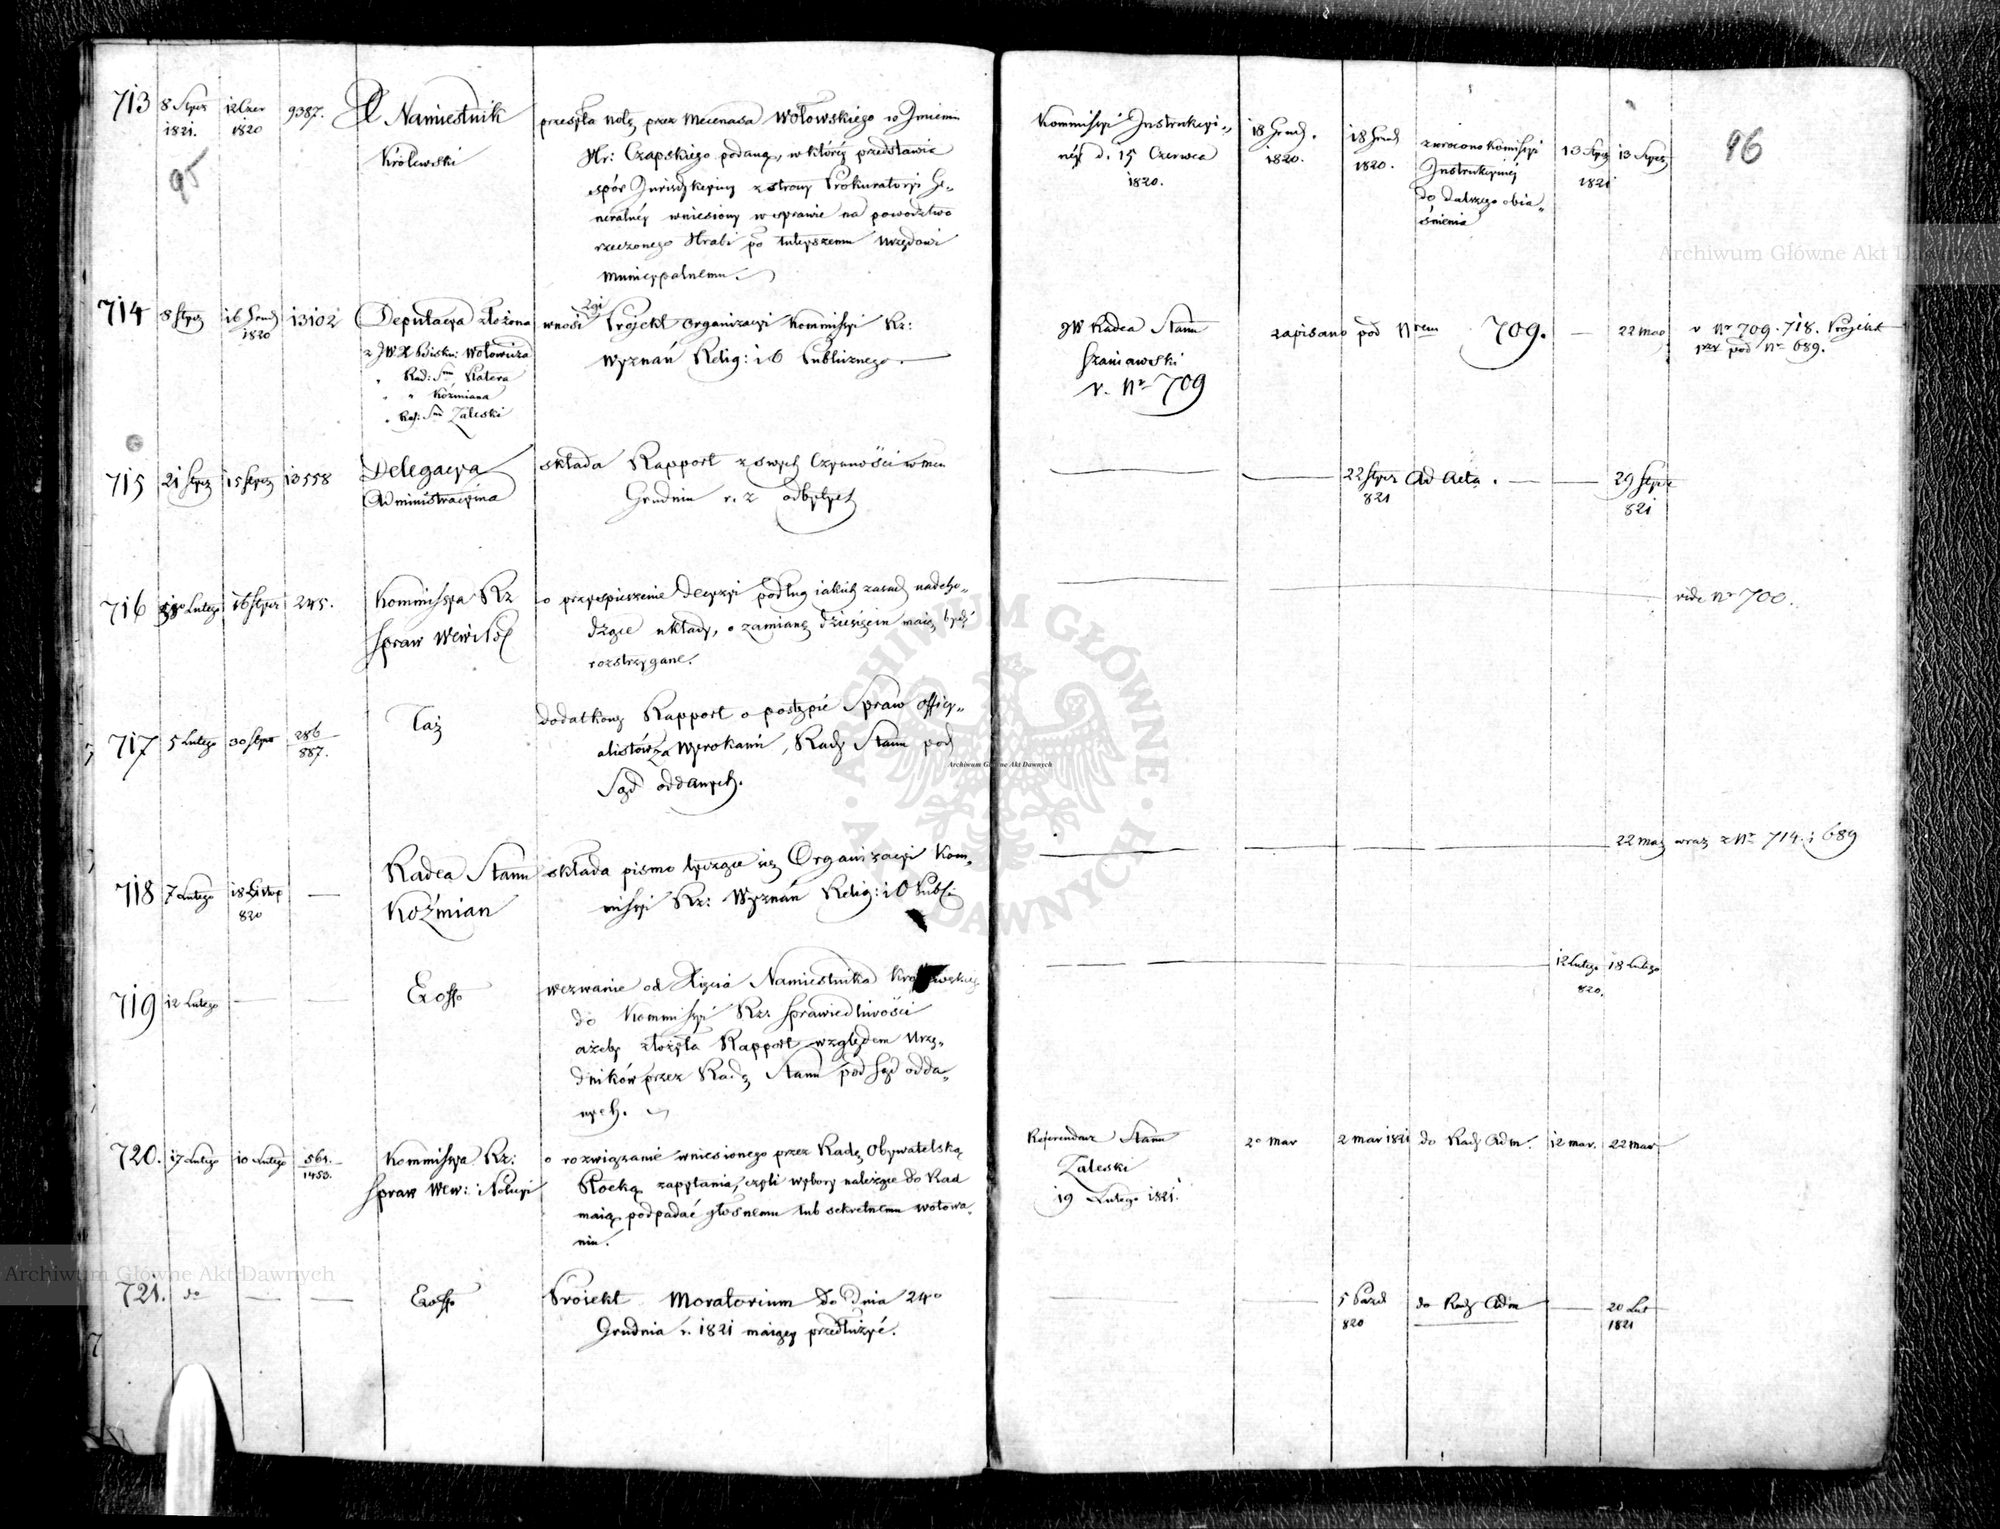 713 8 Stycz 12 Czer 9387. X Namiestnik przesyła notę przez Mecenasa Wołowskiego w Imieniu
1821. 1820 Królewski Hr: Czapskiego podaną, w której przedstawia
95
spór Jurisdykcyiny z strony Prokuratoryi Je-
neralnéy wniesiony w sprawie na powództwo
rzeczonego Hrabi po tuteyszemu Urzędowi
Municypalnemu.
Kommissyi Instrukcyi- 18 Grud. 18 Grud zwrócono Komissyi 13 Stycz 13 Stycz 96
néy d. 15 Czerwca 1820. 1820. Instrukcyinéj 1821
1820. do dalszego obia-
śnienia
714 8 Stycz 16 Grud 13102 Deputacya złożona wnosi 2gi Projekt Organizacyi Kommissyi Rz:
1820 z JWX Bisku: Wołowicza Wyznań Relig: i O Publicznego.
" Rad: Snu Platera
" " Koźmiana
" Ref: Snu Zaleski
JW Radca Stanu zapisano pod Nrem 709. — 22 mar v Nr 709. 718. Proiekt
Szaniawski przy pod Nr 689.
v. Nr 709
715 21 Stycz 15 Stycz 13558 Delegacya składa Rapport z swych Czynności w mcu
Administracyina Grudniu r. z odbytych
— — 22 Stycz Ad Acta. — — 29 Stycz
821 821
716 10 Lutego 16 Stycz 245. Kommissya Rz o przyspieszenie decyzyi podług iakich zasad nadcho-
Spraw Wewn dzące układy, o zamianę dziesięcin maią być
rozstrzygane.
vide Nr 700.
717 5 Lutego 30 Stycz 286 Taż dodatkowy Rapport o postępie Spraw officy-
887. alistów za Wyrokami, Rady Stanu pod
Sąd oddanych.
718 7 Lutego 18 Listop — Radca Stanu składa pismo tyczące się Organizacyi Kom-
820 Koźmian missyi Rz: Wyznań Relig: i O Publ:
— 22 mar wraz z Nr 714. i 689
719 12 Lutego — — Ex offo wezwanie od Xięcia Namiestnika Królewskieg
do Kommissyi Rz: Sprawiedliwości
ażeby złożyła Rapport względem Urzę-
dników przez Radę Stanu pod sąd odda-
nych.
— — 12 Lutego 18 Lutego
820.
720. 17 Lutego 10 Lutego 561. Kommissya Rz: o rozwiązanie wniesionego przez Radę Obywatelską
1453. Spraw Wew: i Policyi Płocką zapytania, czyli wybory należące do Rad
maią podpadać głośnemu lub sekretnemu wotowa-
niu.
Referendarz Stanu 20 mar 2 mar 1821 do Rady Adm. 12 mar. 22 mar
Zaleski
19 Lutego 1821.
721. do — — Ex offo Proiekt Moratorium do dnia 24o
Grudnia r. 1821 maiący przedłużyć.
— — 5 Paźd do Rady Adm — 20 Lut
820 1821
ARCHIWUM GŁÓWNE AKT DAWNYCH
Archiwum Główne Akt Dawnych
Archiwum Główne Akt Dawnych
Archiwum Główne Akt Dawnych